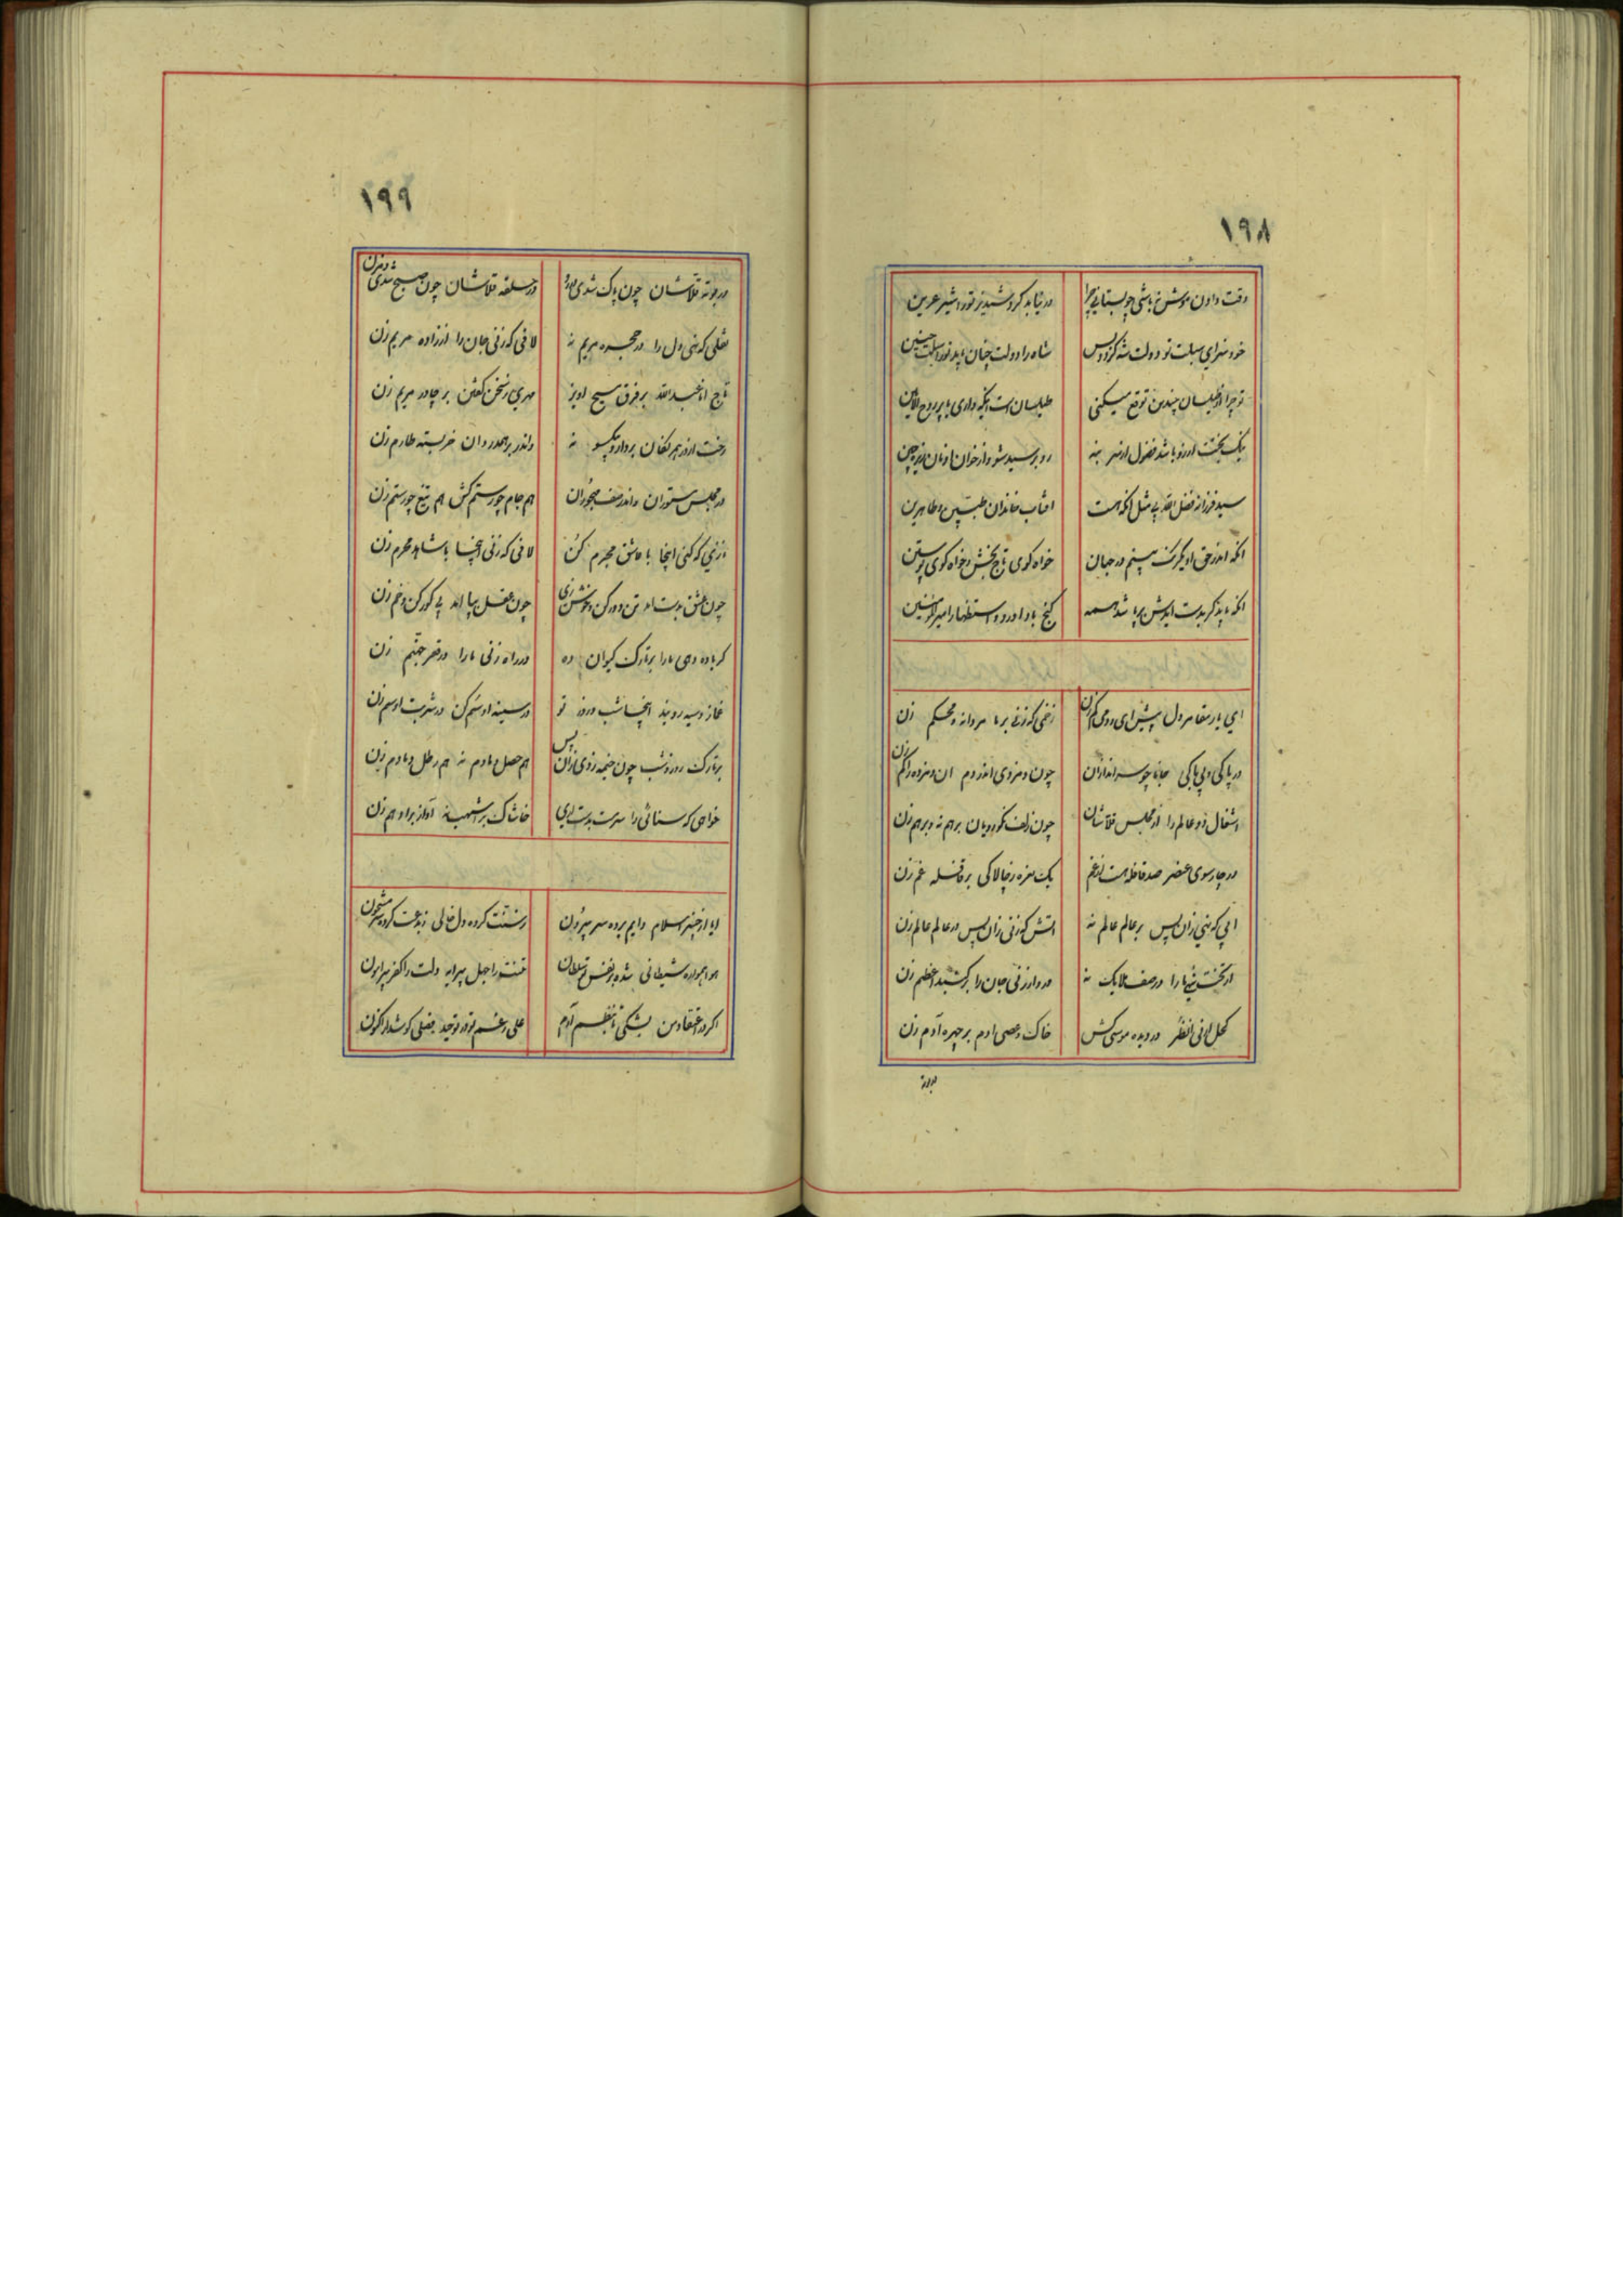 ۱۹۸
وقت دادن موش نر باشی چو بستانی چرا در نیاید کرد شبدیز تو در شیر عرین
خود سزای سبلت تو دولت شه کردو بس شاه را دولت چنان باید تو را سبلت چنین
تو چرا از طیلسان چندین توقع میکنی طیلسان است اینکه داری یا پر روح الامین
نیک بختت آرزو باشد فضول از سر بنه رو بر سید شو و از خوان او نان ریزه چین
سید فرزانه فضل الله بی مثل آنکه هست آفتاب خاندان طیبین و طاهرین
آنکه اندر حق او یکرنک بینم در جهان خواه کوی تاج بخش و خواه کوی پوستین
گنج باد آورد و استظهار امیرالمؤمنین
ای یار مقامر دل پیش آی و دمی کم زن زخمی که زنی بر ما مردانه و محکم زن
در پاکی و بی باکی جانا چو سراندازان چون دم زدی اندر دم آن دم زده را کم زن
اشغال دو عالم را از مجلس قلاشان چون زلف نکورویان برهم نه و برهم زن
در چارسوی عنصر صد قافله هست از غم یک نعره ز چالاکی بر قافله غم زن
آبی که نهی زان پس بر عالم عالم نه آتش که زنی زان پس در عالم عالم زن
ار تخت نهی ما را در صف ملایک نه ور دار زنی جان را بر گنبد اعظم زن
کحل ارنی انظر در دیده موسی کش خاک وعصی آدم بر چهره آدم زن
در بوته
۱۹۹
در بوته قلاشان چون پاک شدی در حلقه قلاشان چون صبح شدی دم زن
نقلی که نهی دل را در حجره مریم نه لافی که زنی جان را از زاده مریم زن
تاج انا عبدالله بر فرق مسیح آویز مهری ز سخن گفتن بر چادر مریم زن
رخت از در هر بردار و بیکسو نه واندر بر همدردان خر پشته طارم زن
در مجلس مستوران واندر صف مهجوران هم جام چو رستم کش هم تیغ چو رستم زن
نازی که کنی اینجا با عاشق مجرم کن لافی که زنی آنجا با شاهد محرم زن
چون عشق بدست آمد تن دور کن و خوش زی چون عقل بپا آمد پی کور کن و خم زن
گر باده دهی ما را بر تارک کیوان ده ور راه زنی ما را در قعر جهنم زن
غماز و سیه رویند اینجا شب و روز تو در سینه او سم کن در شربت او سم زن
بر تارک روز و شب چون خیمه زدی زان پس هم دمادم نه هم رطل دمادم زن
خواهی که سنائی را سرمست بدست آری خاشاک بر اشهب نه آواز بر ادهم زن
ایا از چنبر اسلام دایم برده سر بیرون ز سنت کرده دل خالی ز بدعت کرده سر مشحون
هوا همواره شیطانی شده بر نفس تو سلطان تنت را جهل پیرایه دلت را کفر پیرامون
اگر در اعتقاد من بشکی تا بنظم آرم علی رغم تو در توحید فصلی گوش دار اکنون